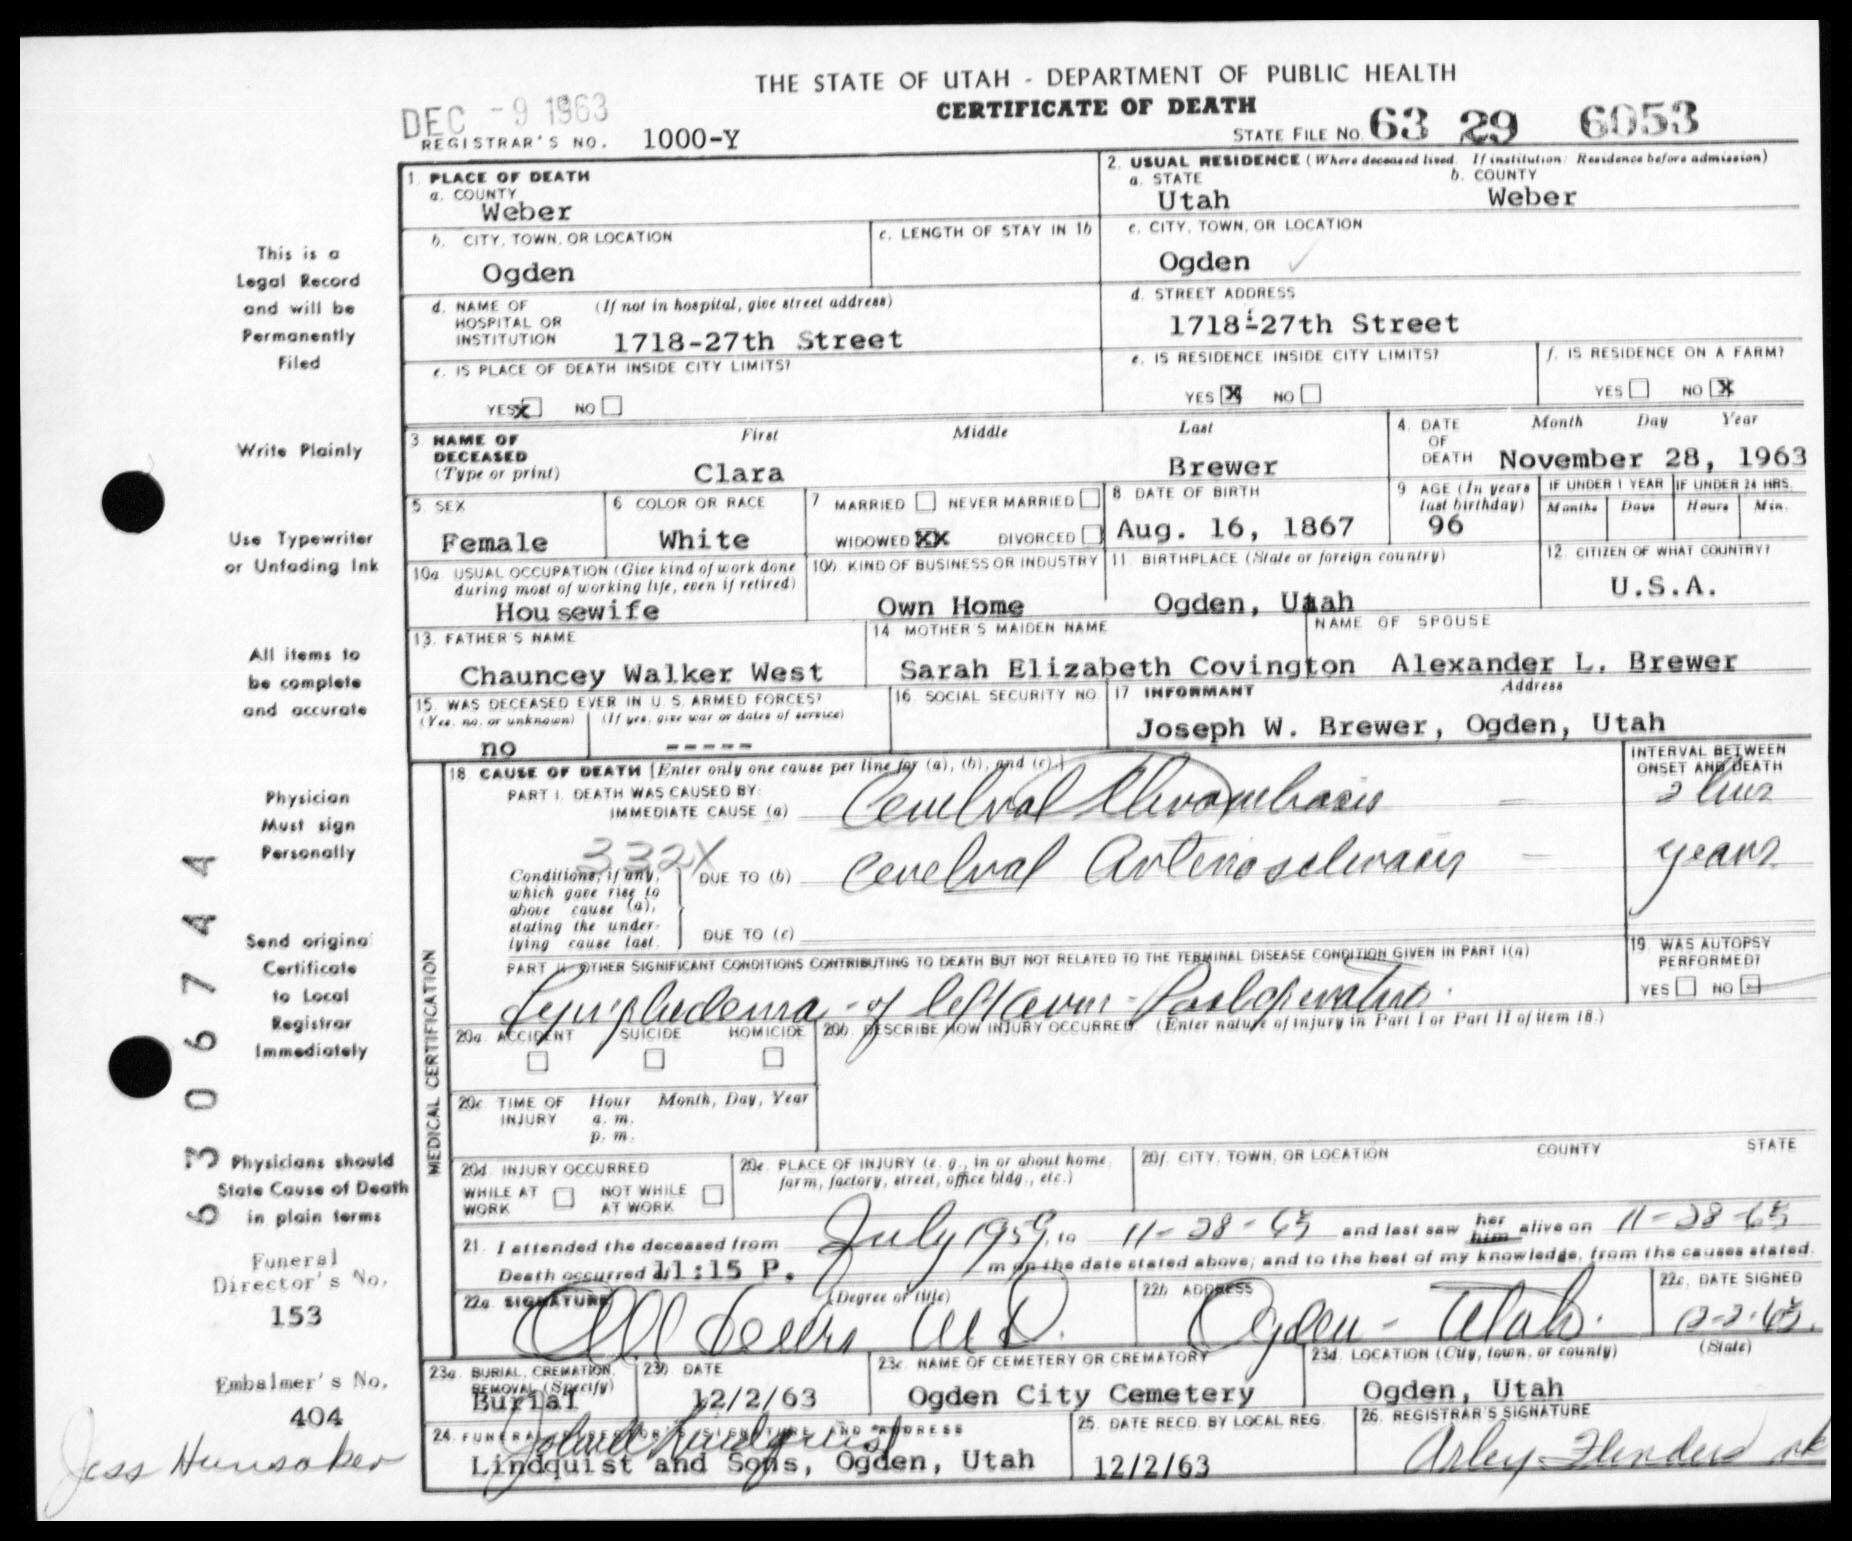 THE STATE OF UTAH - DEPARTMENT OF PUBLIC HEALTH
DEC - 9 1963
CERTIFICATE OF DEATH
REGISTRAR'S NO. 1000-Y
STATE FILE NO. 63 29 6053
1. PLACE OF DEATH
a. COUNTY
Weber
2. USUAL RESIDENCE (Where deceased lived. If institution: Residence before admission)
a. STATE
Utah
b. COUNTY
Weber
b. CITY, TOWN, OR LOCATION
Ogden
c. LENGTH OF STAY IN 1b
c. CITY, TOWN, OR LOCATION
Ogden
d. NAME OF HOSPITAL OR INSTITUTION (If not in hospital, give street address)
1718-27th Street
d. STREET ADDRESS
1718-27th Street
e. IS PLACE OF DEATH INSIDE CITY LIMITS?
YES X NO
e. IS RESIDENCE INSIDE CITY LIMITS?
YES X NO
f. IS RESIDENCE ON A FARM?
YES NO X
3. NAME OF DECEASED (Type or print)
First Middle Last
Clara Brewer
4. DATE OF DEATH
Month Day Year
November 28, 1963
5. SEX
Female
6 COLOR OR RACE
White
7 MARRIED NEVER MARRIED
WIDOWED XX DIVORCED
8 DATE OF BIRTH
Aug. 16, 1867
9 AGE (In years last birthday)
96
IF UNDER 1 YEAR
Months Days
IF UNDER 24 HRS.
Hours Min.
10a. USUAL OCCUPATION (Give kind of work done during most of working life, even if retired)
Housewife
10b. KIND OF BUSINESS OR INDUSTRY
Own Home
11. BIRTHPLACE (State or foreign country)
Ogden, Utah
12. CITIZEN OF WHAT COUNTRY?
U.S.A.
13. FATHER'S NAME
Chauncey Walker West
14. MOTHER'S MAIDEN NAME
Sarah Elizabeth Covington
NAME OF SPOUSE
Alexander L. Brewer
15. WAS DECEASED EVER IN U. S. ARMED FORCES?
(Yes, no, or unknown) (If yes, give war or dates of service)
no -----
16. SOCIAL SECURITY NO.
17 INFORMANT Address
Joseph W. Brewer, Ogden, Utah
MEDICAL CERTIFICATION
18. CAUSE OF DEATH [Enter only one cause per line for (a), (b), and (c).]
INTERVAL BETWEEN ONSET AND DEATH
PART I. DEATH WAS CAUSED BY:
IMMEDIATE CAUSE (a) Cerebral Thrombosis -
332X
Conditions, if any, which gave rise to above cause (a), stating the underlying cause last.
DUE TO (b) Cerebral Arteriosclerosis - years
DUE TO (c)
PART II. OTHER SIGNIFICANT CONDITIONS CONTRIBUTING TO DEATH BUT NOT RELATED TO THE TERMINAL DISEASE CONDITION GIVEN IN PART I(a)
Lymphedema - of left arm - Postoperative.
19. WAS AUTOPSY PERFORMED?
YES NO
20a. ACCIDENT SUICIDE HOMICIDE
20b. DESCRIBE HOW INJURY OCCURRED. (Enter nature of injury in Part I or Part II of item 18.)
20c. TIME OF INJURY Hour Month, Day, Year
a. m.
p. m.
20d. INJURY OCCURRED
WHILE AT WORK NOT WHILE AT WORK
20e. PLACE OF INJURY (e. g., in or about home, farm, factory, street, office bldg., etc.)
20f. CITY, TOWN, OR LOCATION COUNTY STATE
21. I attended the deceased from July 1959, to 11-28-63 and last saw her him alive on 11-28-63
Death occurred at 11:15 P. m on the date stated above; and to the best of my knowledge, from the causes stated.
22a. SIGNATURE (Degree or title)
M D.
22b. ADDRESS
Ogden - Utah.
22c. DATE SIGNED
12-2-63.
23a. BURIAL, CREMATION, REMOVAL (Specify)
Burial
23b. DATE
12/2/63
23c. NAME OF CEMETERY OR CREMATORY
Ogden City Cemetery
23d. LOCATION (City, town, or county) (State)
Ogden, Utah
24. FUNERAL DIRECTOR'S SIGNATURE AND ADDRESS
Lindquist and Sons, Ogden, Utah
25. DATE RECD. BY LOCAL REG.
12/2/63
26. REGISTRAR'S SIGNATURE
Arley Flinders
This is a
Legal Record
and will be
Permanently
Filed
Write Plainly
Use Typewriter
or Unfading Ink
All items to
be complete
and accurate
Physician
Must sign
Personally
Send original
Certificate
to Local
Registrar
Immediately
Physicians should
State Cause of Death
in plain terms
6306744
Funeral
Director's No.
153
Embalmer's No.
404
Jess Hunsaker